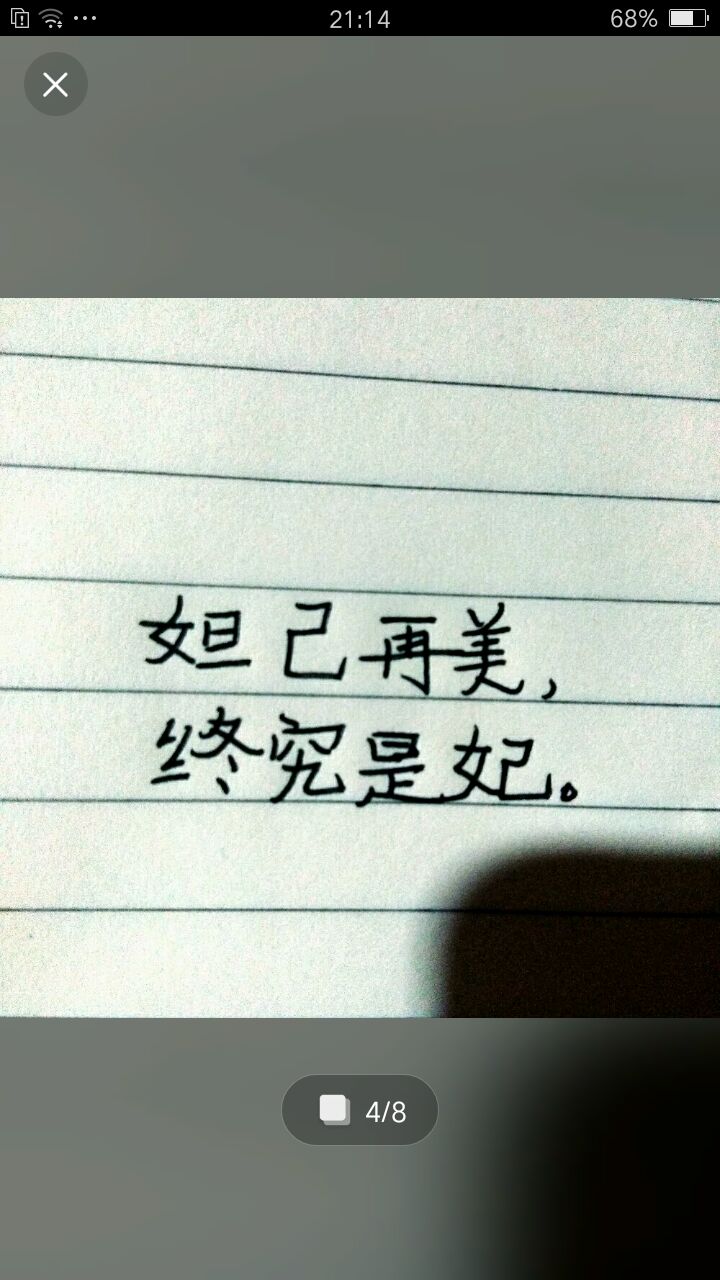 21:14
68%
妲己再美，
终究是妃。
4/8